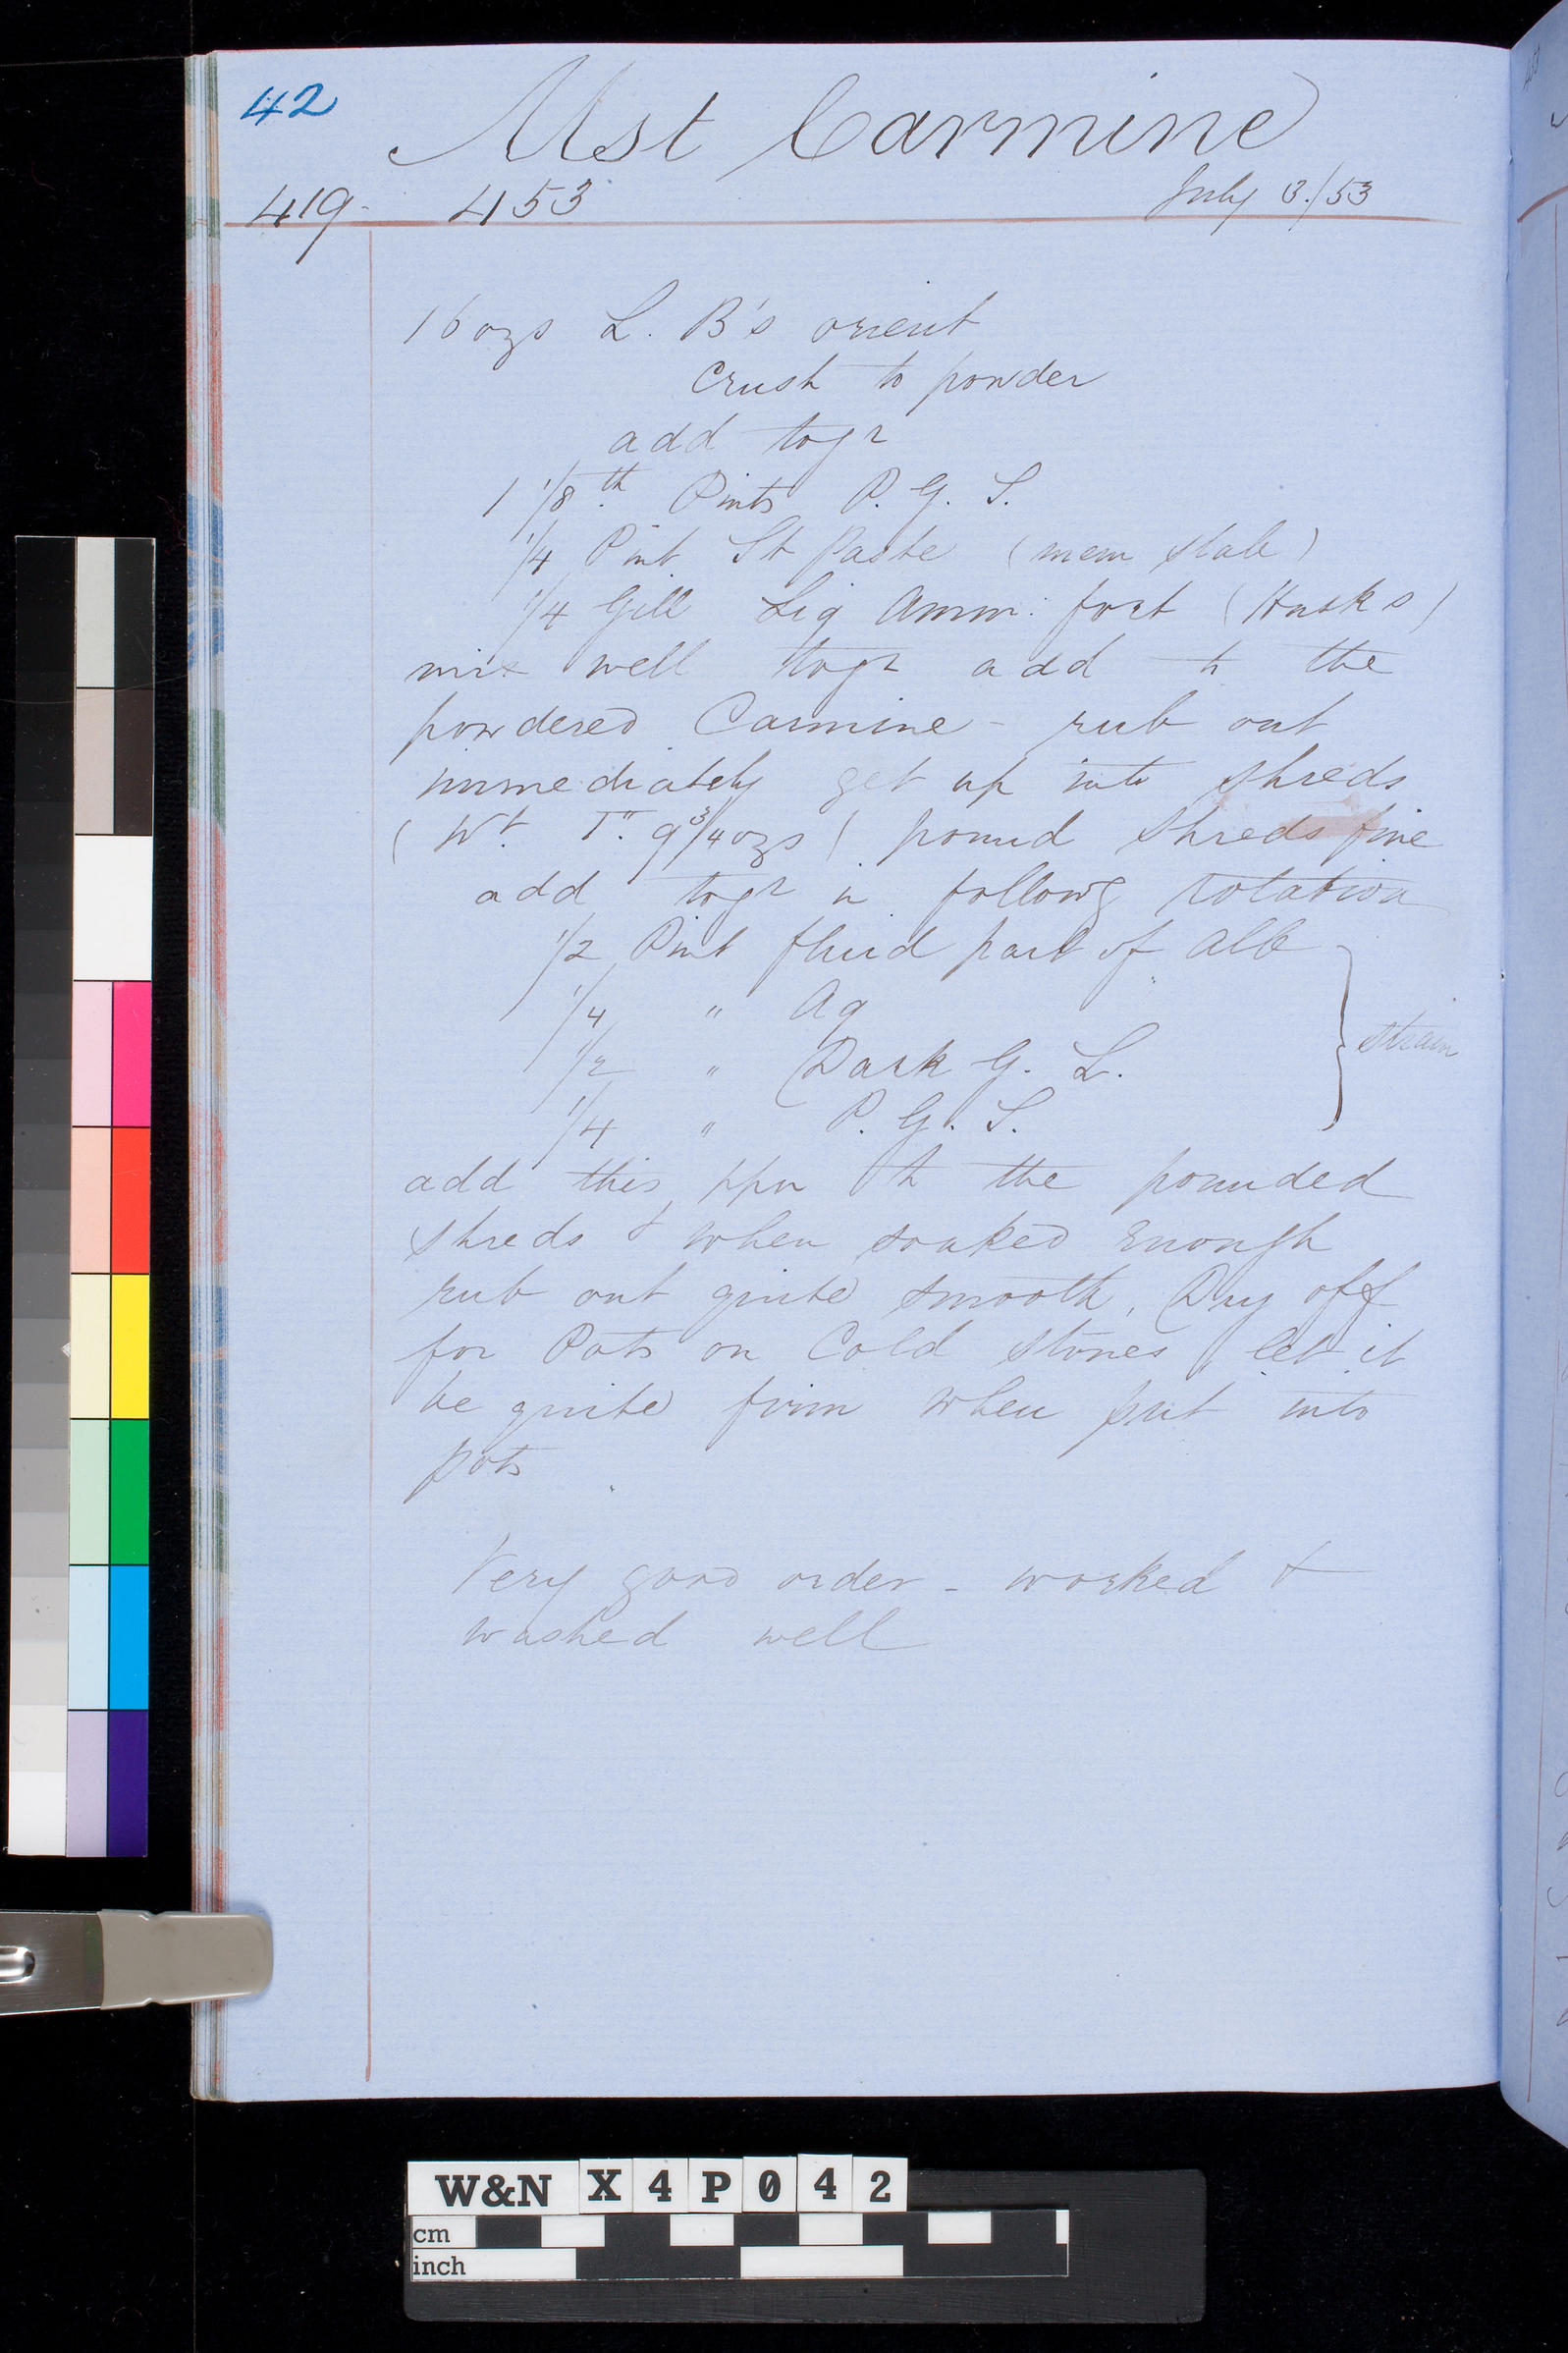 42
Mst Carmine
419 - 453 July 3./53
16 ozs L. B's orient
crush to powder
add togr
1 1/8th Pints P. G. S.
1/4 Pint St Paste (mem slab)
1/4 Gill Liq Amm: fort (Husks)
mix well togr add to the
powdered Carmine - rub out
immediately get up into shreds
(Wt. T" 9 3/4 ozs) pound shreds fine
add togr in followg rotation
1/2 Pint fluid part of Alb
1/4 " Aq
1/2 " Dark G. L.
1/4 " P. G. S.
strain
add this ppn to the pounded
shreds & when soaked enough
rub out quite smooth, Dry off
for Pots on Cold stones, let it
be quite firm when put into
pots
Very good order - worked &
washed well
W&N X4P042
cm
inch